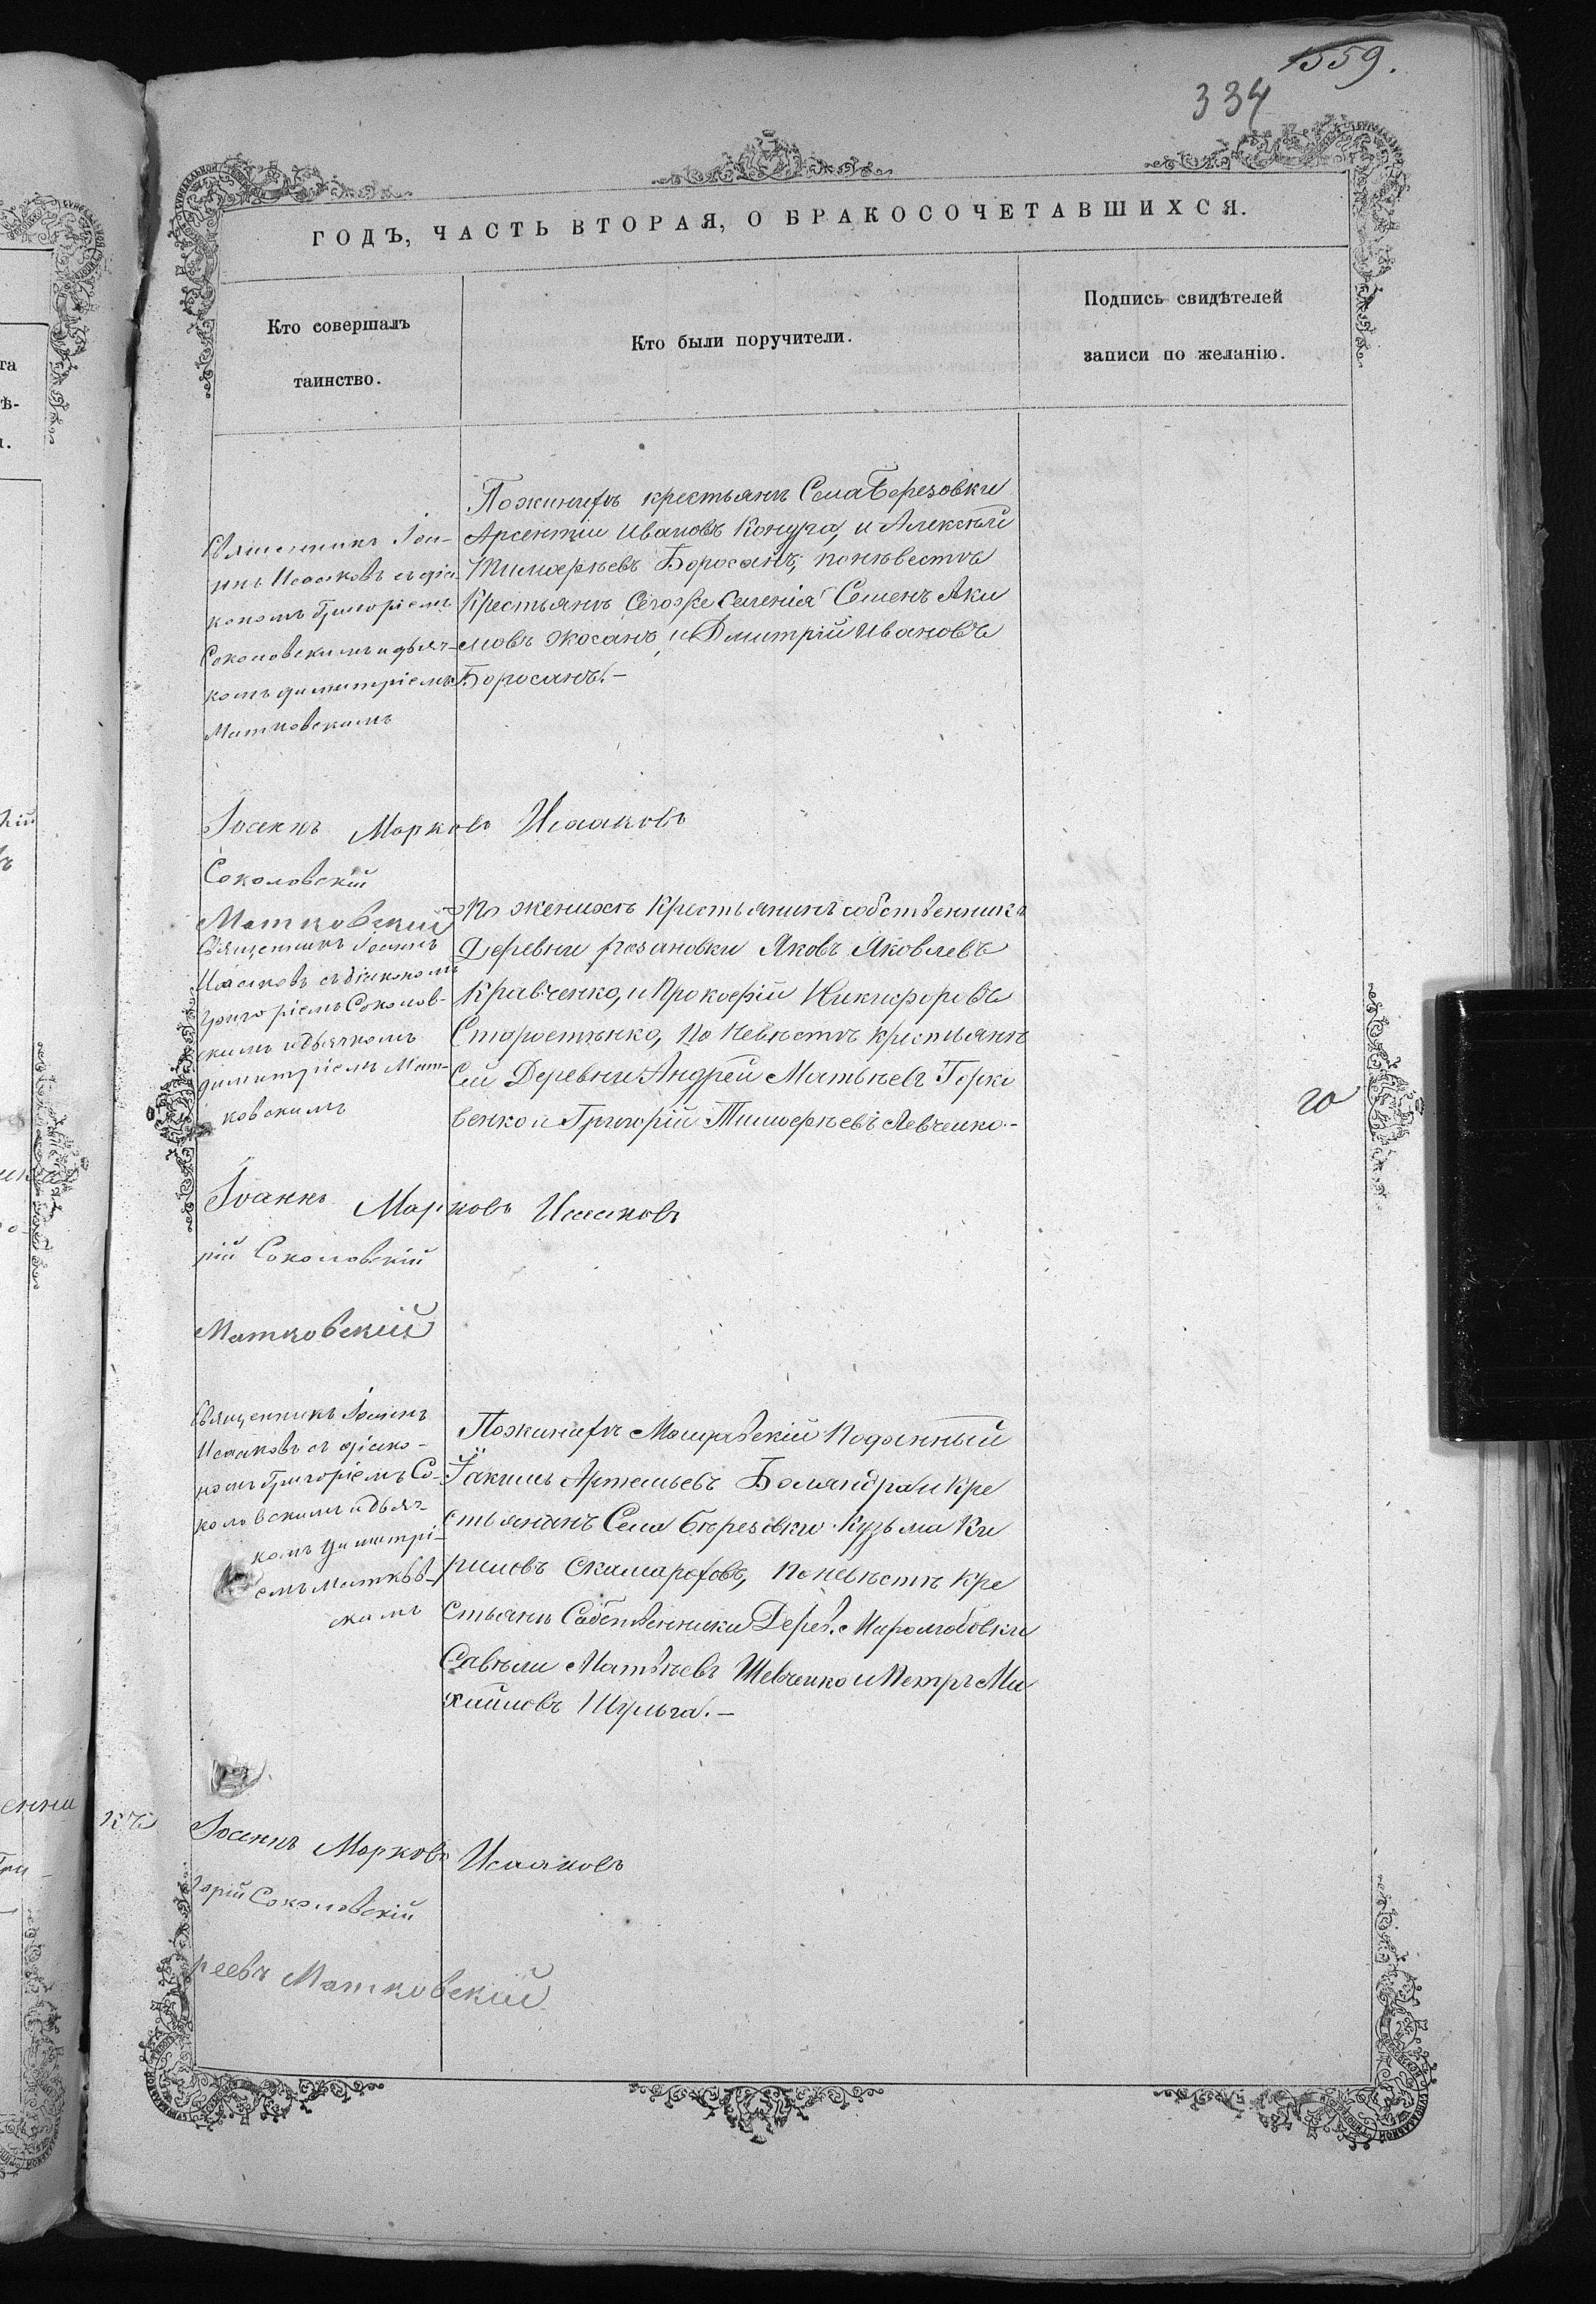 1559.
334
ГОДЪ, ЧАСТЬ ВТОРАЯ, О БРАКОСОЧЕТАВШИХСЯ.
Кто совершалъ
таинство.
Кто были поручители.
Подпись свидѣтелей
записи по желанію.
Священникъ Іоа-
ннъ Исааковъ съ діа
кономъ Григоріемъ
Соколовскимъ и дьяч-
комъ димитріемъ
Матковскимъ
По жинихѣ крестьянъ Села Березовки
Арсентіи Ивановъ Кондра, и Алексѣй
Тимоерѣевъ Боросанъ, поневестѣ
Крестьянъ Сегоже Селенія Семенъ Яки
мовъ Жосанъ, и Дмитрій Ивановъ
Боросанъ.–
Іоаннъ Марковъ Исааковъ
Соколовскій
Матковскій
Священникъ Іоаннъ
Исааковъ съ діакономъ
Григоріемъ Соколов-
скимъ и дьячкомъ
димитріемъ Мат-
ковскимъ
По женихѣ Крестьянинъ собственникъ
Деревни розановки Яковъ Яковлевъ
Кравченко, и Прокофій Никифоровъ
Старостѣнко, По Невѣстѣ крестьянъ
Сеи Деревни Андрей Матвѣевъ Горко
венко и Григорій Тимоерѣевъ Левченко.–
20
Іоаннъ Марковъ Исааковъ
рій Соколовскій
Матковскій
Священникъ Іоаннъ
Исааковъ съ діако-
номъ Григоріемъ Со-
коловскимъ и дьяч-
комъ димитрі-
емъ Маткѣв-
скимъ
По жинихѣ Молдавскій Поданный
Іакимъ Артемьевъ Боландра и Кре
стьянинъ Села березовки Кузьма Ки
риловъ Скамарофовъ, По невѣстѣ Кре
стьянъ Собственники Дерев. Миролюбовки
Савѣли Матвѣевъ Шевченко и Петръ Ми
хайловъ Шульга.–
къ
Іоаннъ Марковъ Исааковъ
горій Соколовскій
реевъ Матковскій